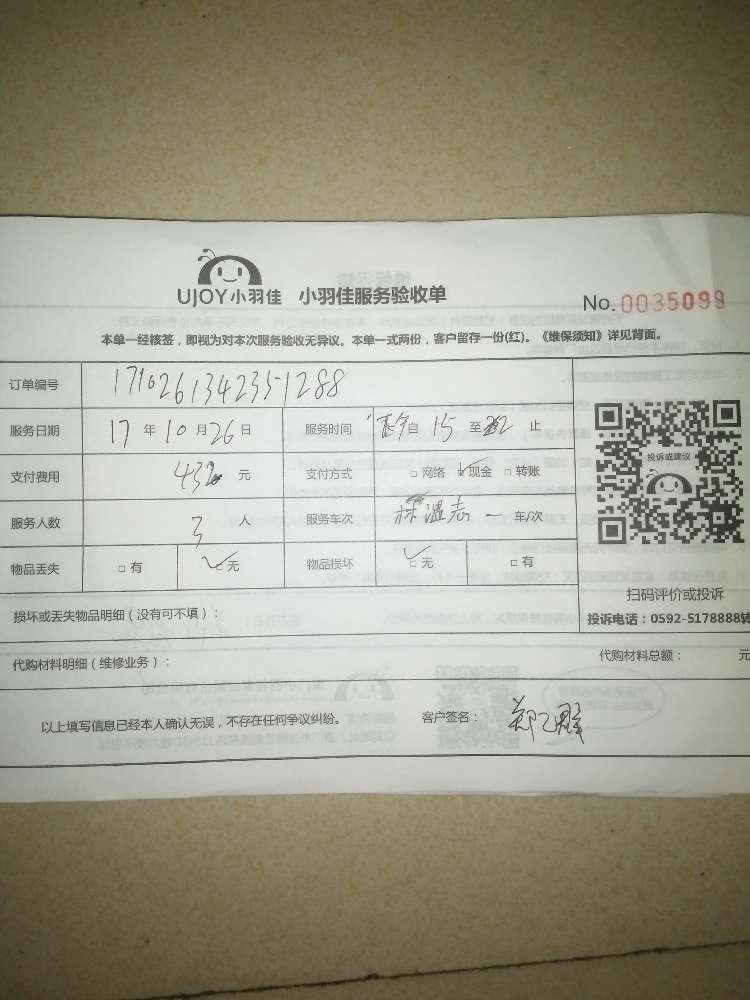 UJOY小羽佳 小羽佳服务验收单 No.0035099
本单一经核签，即视为对本次服务验收无异议。本单一式两份，客户留存一份(红)。《维保须知》详见背面。
订单编号 171026134235-1288
服务日期 17 年 10 月 26 日 服务时间 自 15 至 22 止
支付费用 432 元 支付方式 □ 网络 ✓ 现金 □ 转账
服务人数 3 人 服务车次 林温志 一 车/次
物品丢失 □ 有 ✓ 无 物品损坏 ✓ 无 □ 有
投诉或建议
扫码评价或投诉
投诉电话：0592-5178888转
损坏或丢失物品明细（没有可不填）：
代购材料明细（维修业务）： 代购材料总额： 元
以上填写信息已经本人确认无误，不存在任何争议纠纷。 客户签名：